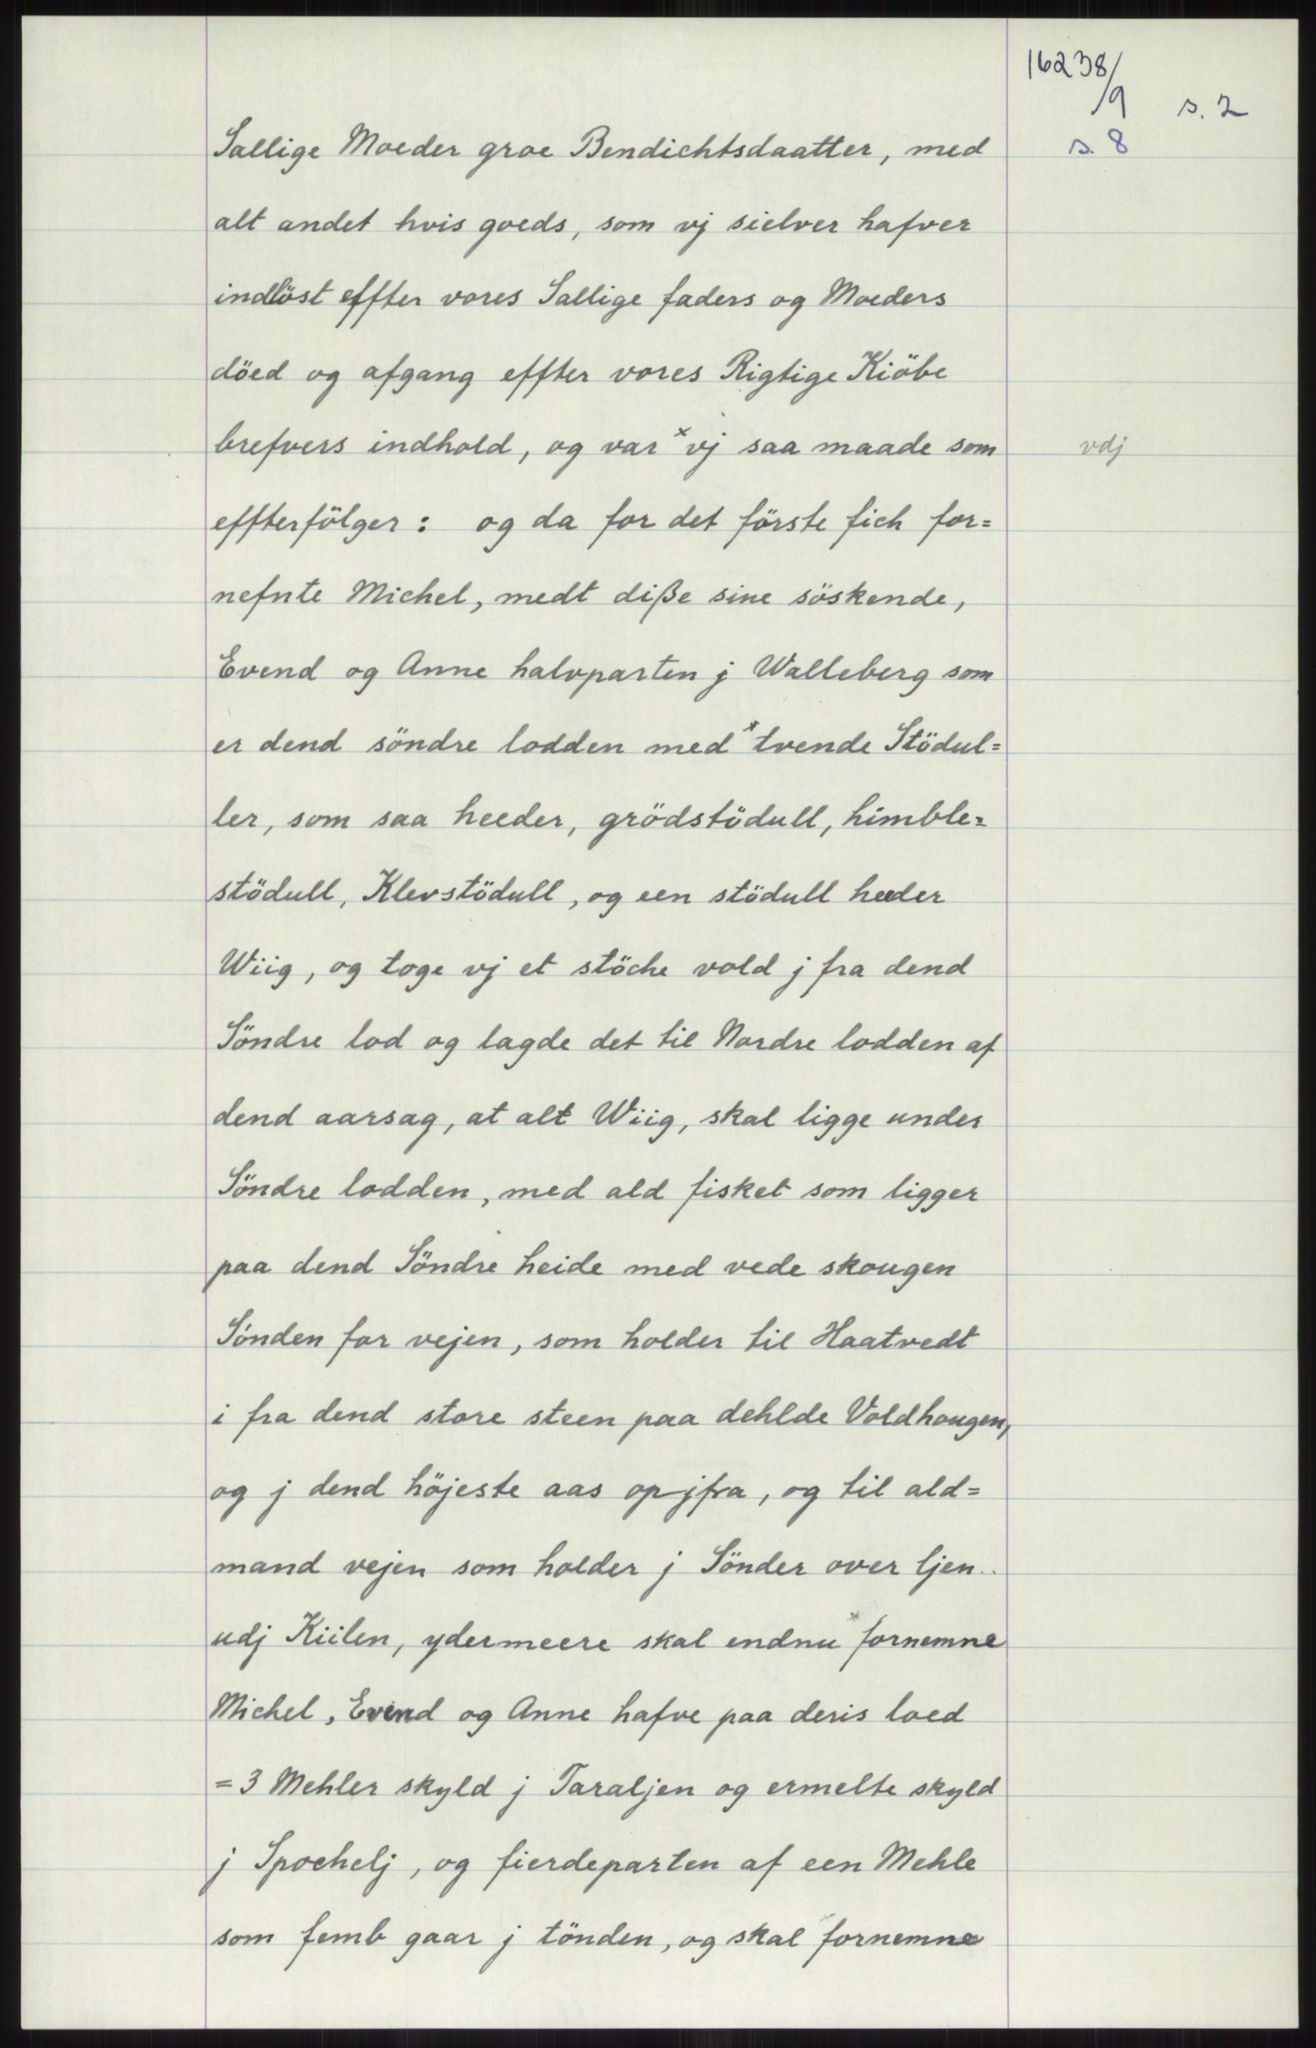 16238/9 s. 2
s. 8
Sallige Moeder groe Bendichtsdaatter, med
alt andet hvis goeds, som vj sielver hafver
indlöst effter vores Sallige faders og Moeders
döed og afgang effter vores Rigtige Kiöbe
brefvers indhold, og var x vj saa maade som
vdj
effterfölger: og da for det förste fich for=
nefnte Michel, medt diße sine söskende,
Evend og Anne halvparten j Walleberg som
er dend söndre lodden med x tvende Stödul=
ler, som saa heeder, grödstödull, himble=
stödull, Klevstödull, og een stödull heeder
Wiig, og toge vj et stöche vold j fra dend
Söndre lod og lagde det til Nordre lodden af
dend aarsag, at alt Wiig, skal ligge under
Söndre lodden, med ald fisket som ligger
paa dend Söndre heide med vede skougen
Sönden for vejen, som holder til Haatvedt
i fra dend store steen paa dehlde Voldhougen,
og j dend höjeste aas op jfra, og til ald=
mand vejen som holder j Sönder over ljen..
udj Kiilen, ydermeere skal endnu x fornemne
Michel, Evend og Anne hafve paa deris loed
=3 Mehler skyld j Taraljen og ermelte skyld
j Spochelj, og fierdeparten af een Mehle
som femb gaar j tönden, og skal fornemne